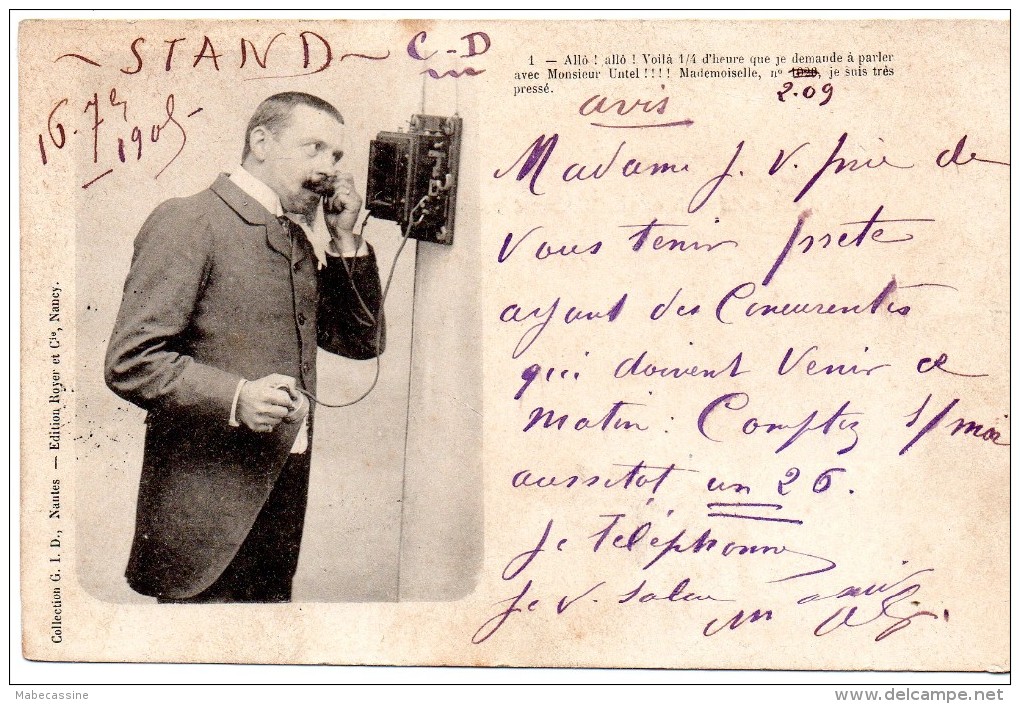 ~ STAND ~ C-D
16.7re 1905
1 — Allô ! allô ! Voilà 1/4 d'heure que je demande à parler
avec Monsieur Untel !!!! Mademoiselle, n° 1020, je suis très
pressé.
2.09
avis
Madame J. V. prie de
vous tenir prete
ayant des Concurentes
qui doivent venir ce
matin. Comptez s/ moi
aussitot un 26.
Je téléphonne
Je v. salue
Collection G. I. D., Nantes — Edition Royer et Cie, Nancy.
Mabecassine
www.delcampe.net